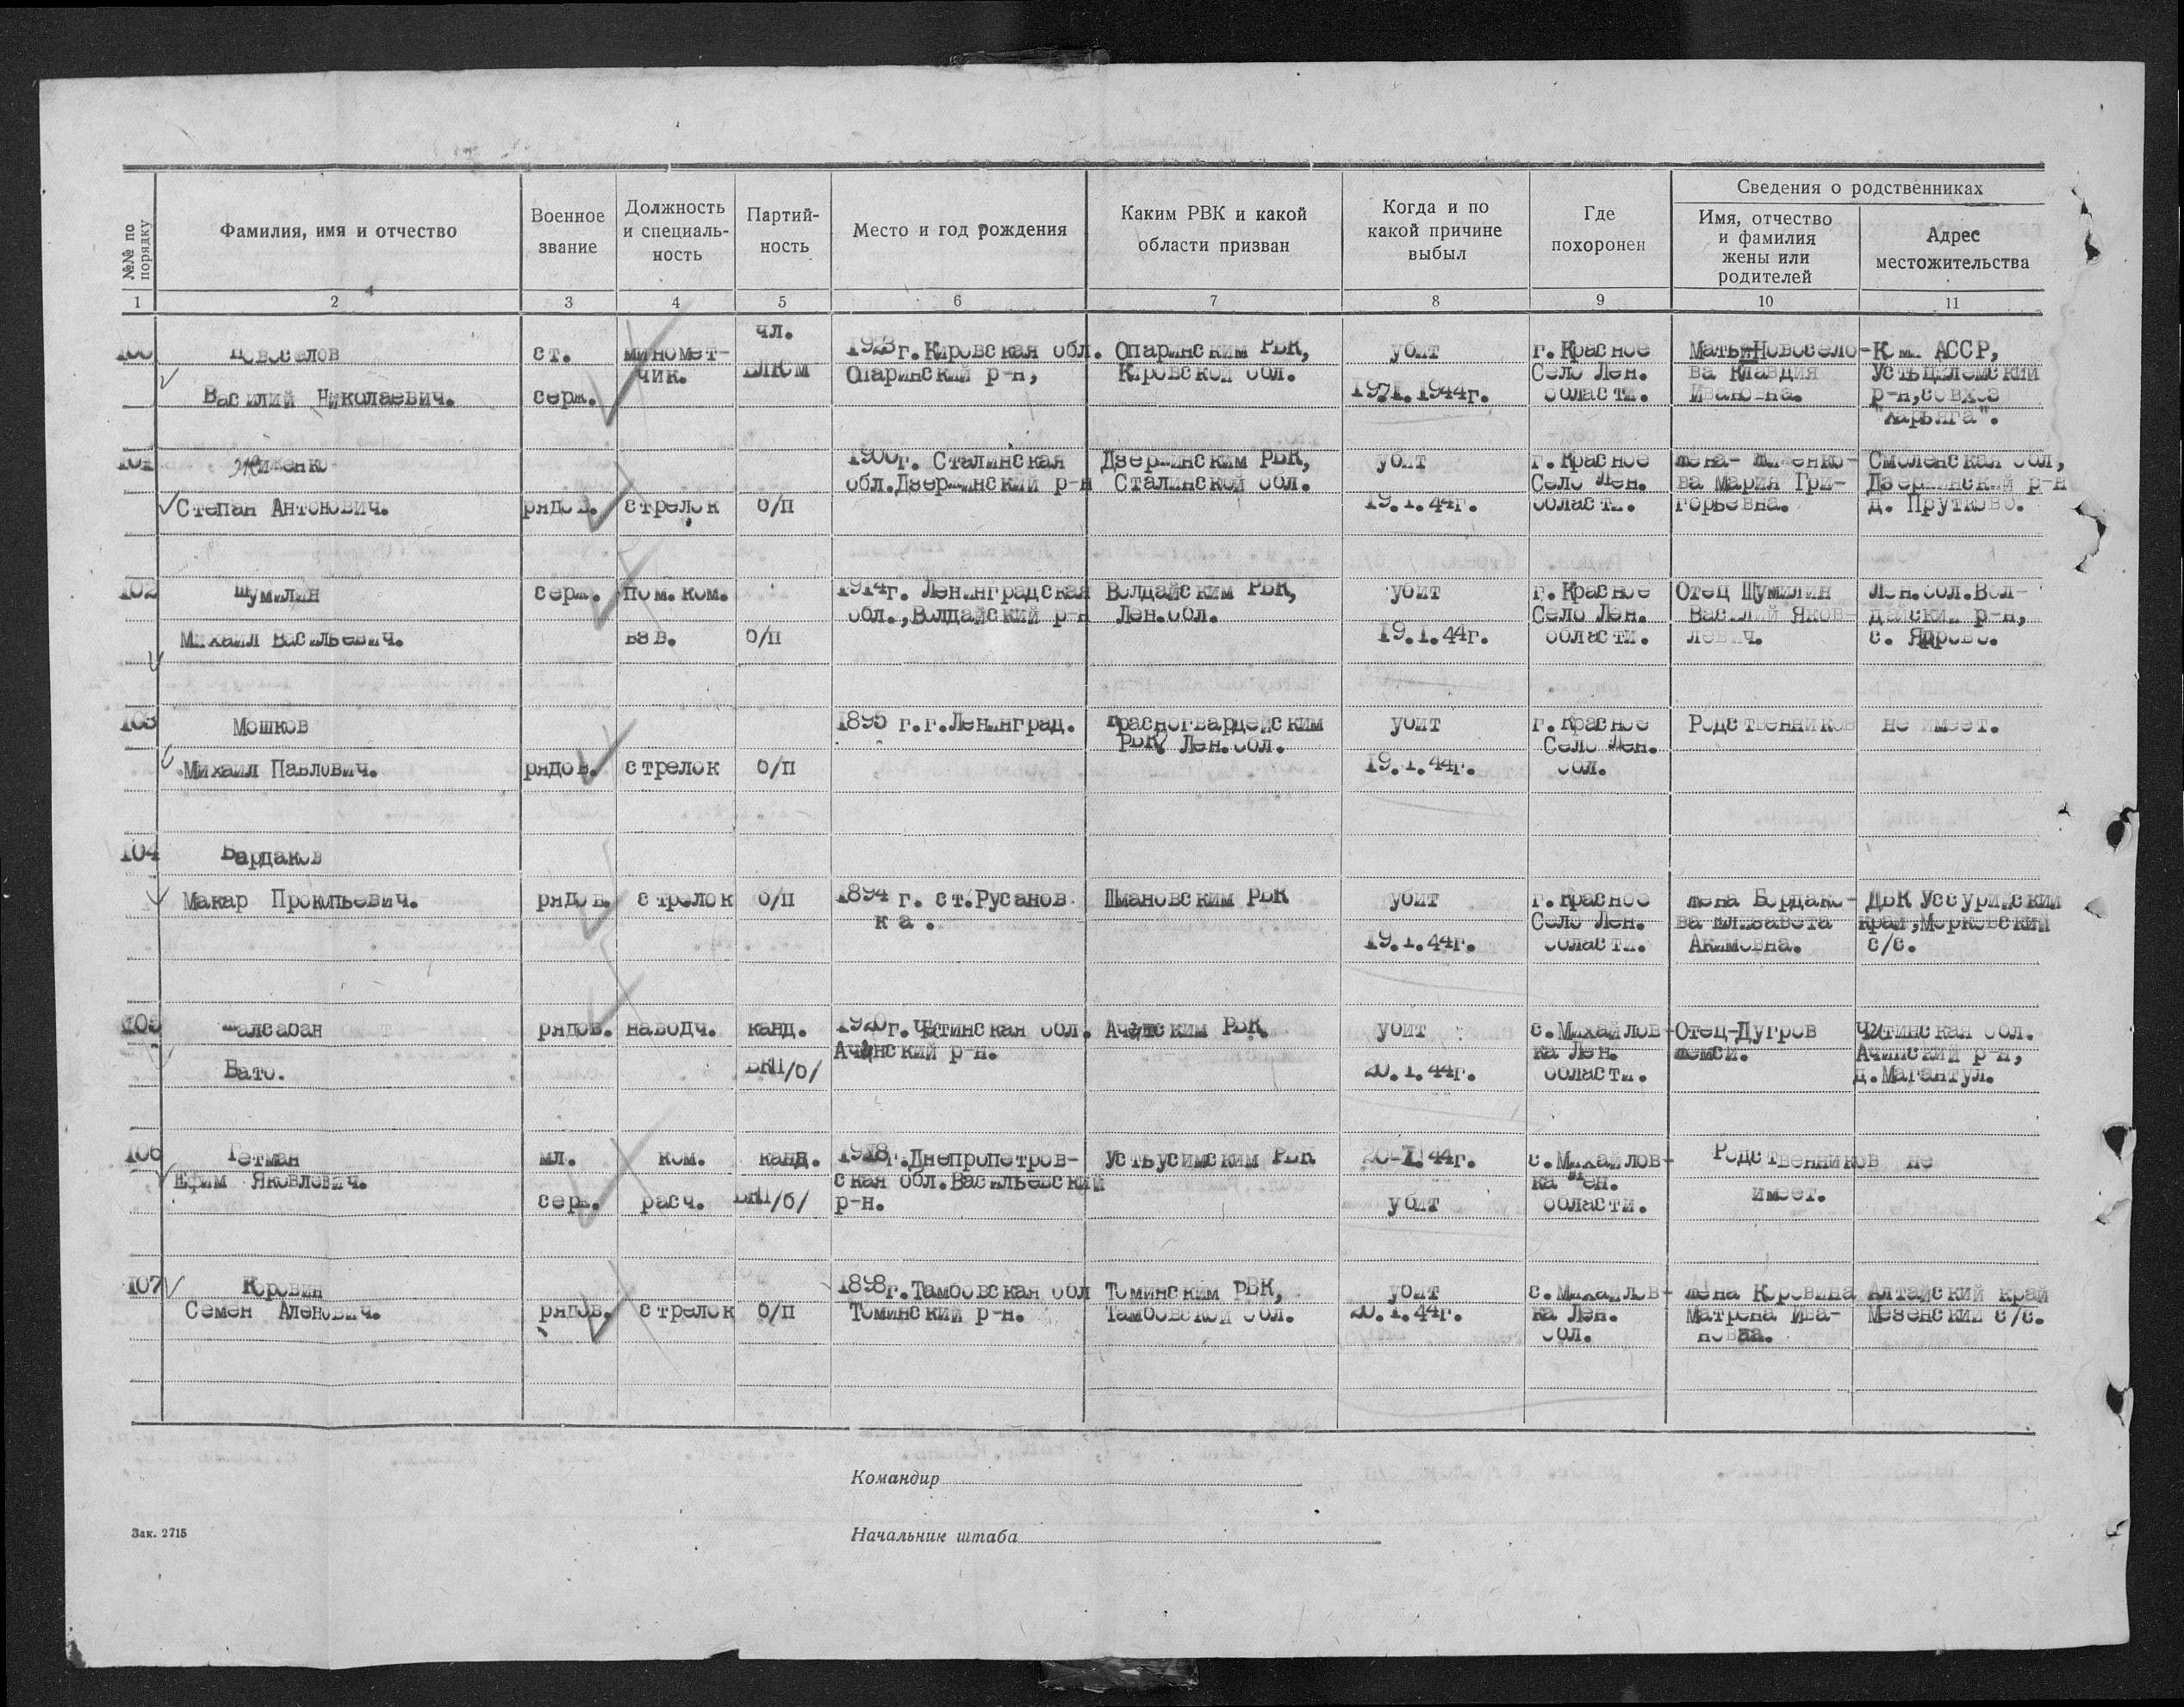 №№ по порядку
Фамилия, имя и отчество
Военное звание
Должность и специаль-ность
Партий-ность
Место и год рождения
Каким РВК и какой области призван
Когда и по какой причине выбыл
Где похоронен
Сведения о родственниках
Имя, отчество и фамилия жены или родителей
Адрес местожительства
1 2 3 4 5 6 7 8 9 10 11
чл.
100 Новоселов ст. миномет- 1923г.Кировская обл. Опаринским РВК, убит г.Красное Мать-Новосело- Коми АССР,
чик. ВЛКСМ Опаринский р-н, Кировской обл. Село Лен. ва Клавдия Устьцилемский
Василий Николаевич. серж. 19.I.1944г. области. Ивановна. р-н,совхоз
"Харьяга".
101 Жиженко 1900г. Сталинская Дзержинским РВК, убит г.Красное жена- Смоленская обл,
обл.Дзержинский р-н Сталинской обл. Село Лен. ва Мария Гри- Дзержинский р-н
Степан Антонович. рядов. стрелок б/п 19.1.44г. области. горьевна. д. Прутково.
102 Шумилин серж. пом.ком. 1914г. Ленинградская Волдайским РВК, убит г.Красное Отец Шумилин Лен.обл.Вол-
обл.,Волдайский р-н Лен.обл. Село Лен. Василий Яков- дайский р-н,
Михаил Васильевич. взв. б/п 19.1.44г. области. левич. с. Ядрово.
103 Мошков 1895 г.г.Ленинград. Красногвардейским убит г.Красное Родственников не имеет.
РВК, Лен.обл. Село Лен.
Михаил Павлович. рядов. стрелок б/п 19.1.44г. обл.
104 Бардаков
Макар Прокопьевич. рядов. стрелок б/п 1894 г. ст.Русанов Шмановским РВК убит г.Красное жена Бордако- ДВК Уссурийский
ка. Село Лен. ва Елизавета край,Морковский
19.1.44г. области. Акимовна. с/с.
105 Галсаран рядов. наводч. канд. 1920г.Читинская обл. Ачинским РВК убит с.Михайлов- Отец-Дугров Читинская обл.
Ачинский р-н. ка Лен. Жемси. Ачинский р-н,
Бато. ВКП/б/ 20.1.44г. области. д.Магантул.
106 Гетман мл. ком. канд. 1918г.Днепропетров- Устьусимским РВК 20-I.44г. с.Михайлов- Родственников не
Ефим Яковлевич. ская обл.Васильевский ка Лен.
серж. расч. ВКП/б/ р-н. убит области. имеет.
107 Коровин 1898г.Тамбовская обл Томинским РВК, убит с.Михайлов- жена Коровина Алтайский край
Семен Аленович. рядов. стрелок б/п Томинский р-н. Тамбовской обл. 20.1.44г. ка Лен. Матрена Ива- Мезенский с/с.
обл. новна.
Командир
Зак. 2715
Начальник штаба